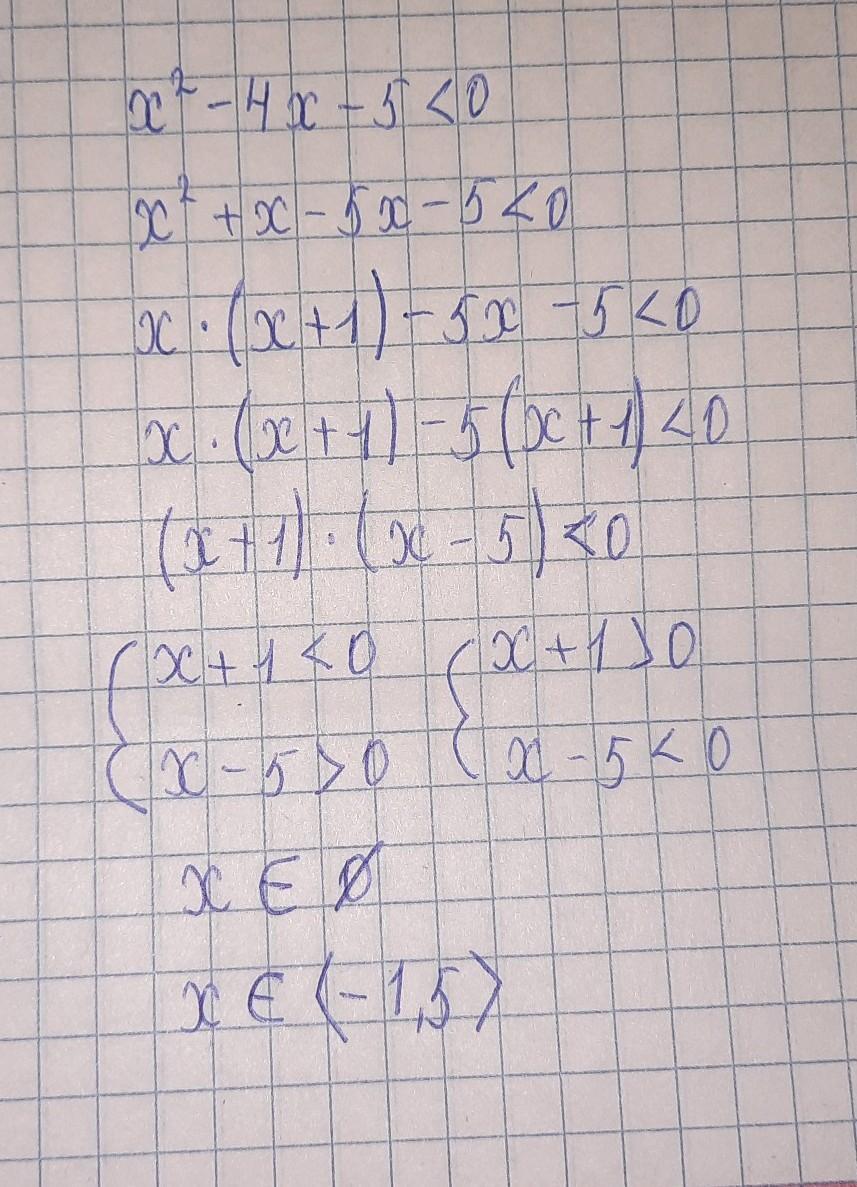 x² - 4x - 5 < 0
x² + x - 5x - 5 < 0
x · (x + 1) - 5x - 5 < 0
x · (x + 1) - 5(x + 1) < 0
(x + 1) · (x - 5) < 0
{ x + 1 < 0 { x + 1 > 0
x - 5 > 0 x - 5 < 0
x ∈ ∅
x ∈ ⟨-1,5⟩